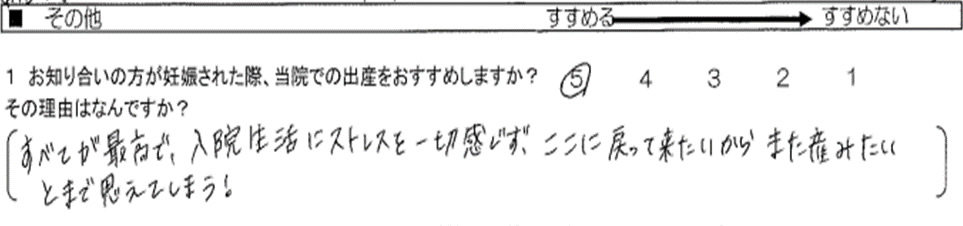 ■ その他 すすめる すすめない
1 お知り合いの方が妊娠された際、当院での出産をおすすめしますか? 5 4 3 2 1
その理由はなんですか?
(すべてが最高で、入院生活にストレスを一切感じず、ここに戻って来たいからまた産みたい
とまで思えてしまう!)